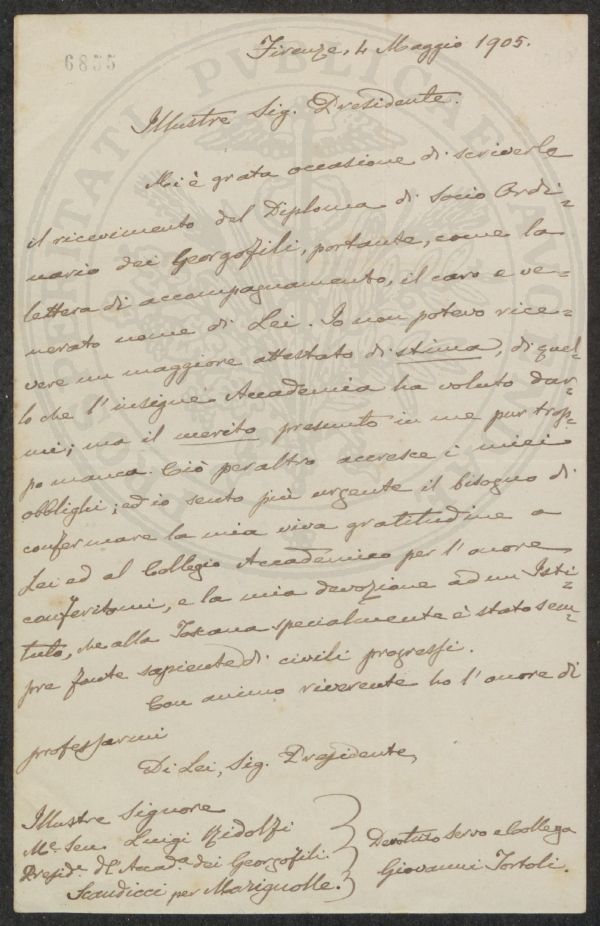 6855
Firenze, 4 Maggio 1905.
Illustre Sig. Presidente.
Mi è grata occasione di scriverle
il ricevimento del Diploma di Socio Ordi-
nario dei Georgofili, portante, come la
lettera di accompagnamento, il caro e ve-
nerato nome di Lei. Io non potevo rice-
vere un maggiore attestato di stima, di quel-
lo che l'insigne Accademia ha voluto dar-
mi; ma il merito presunto in me pur trop-
po manca. Ciò peraltro accresce i miei
obblighi; ed io sento più urgente il bisogno di
confermare la mia viva gratitudine a
Lei ed al Collegio Accademico per l'onore
conferitomi, e la mia devozione ad un Isti-
tuto, che alla Toscana specialmente è stato sem-
pre fonte sapiente di civili progressi.
Con animo riverente ho l'onore di
professarmi
Di Lei, Sig. Presidente,
Illustre Signore
Mse. Sen. Luigi Ridolfi
Preside. dl'Accada. dei Georgofili.
Scandicci per Marignolle.
Devotuto Servo e Collega
Giovanni Tortoli.
PROSPERITATI PVBLICAE AVGENDAE